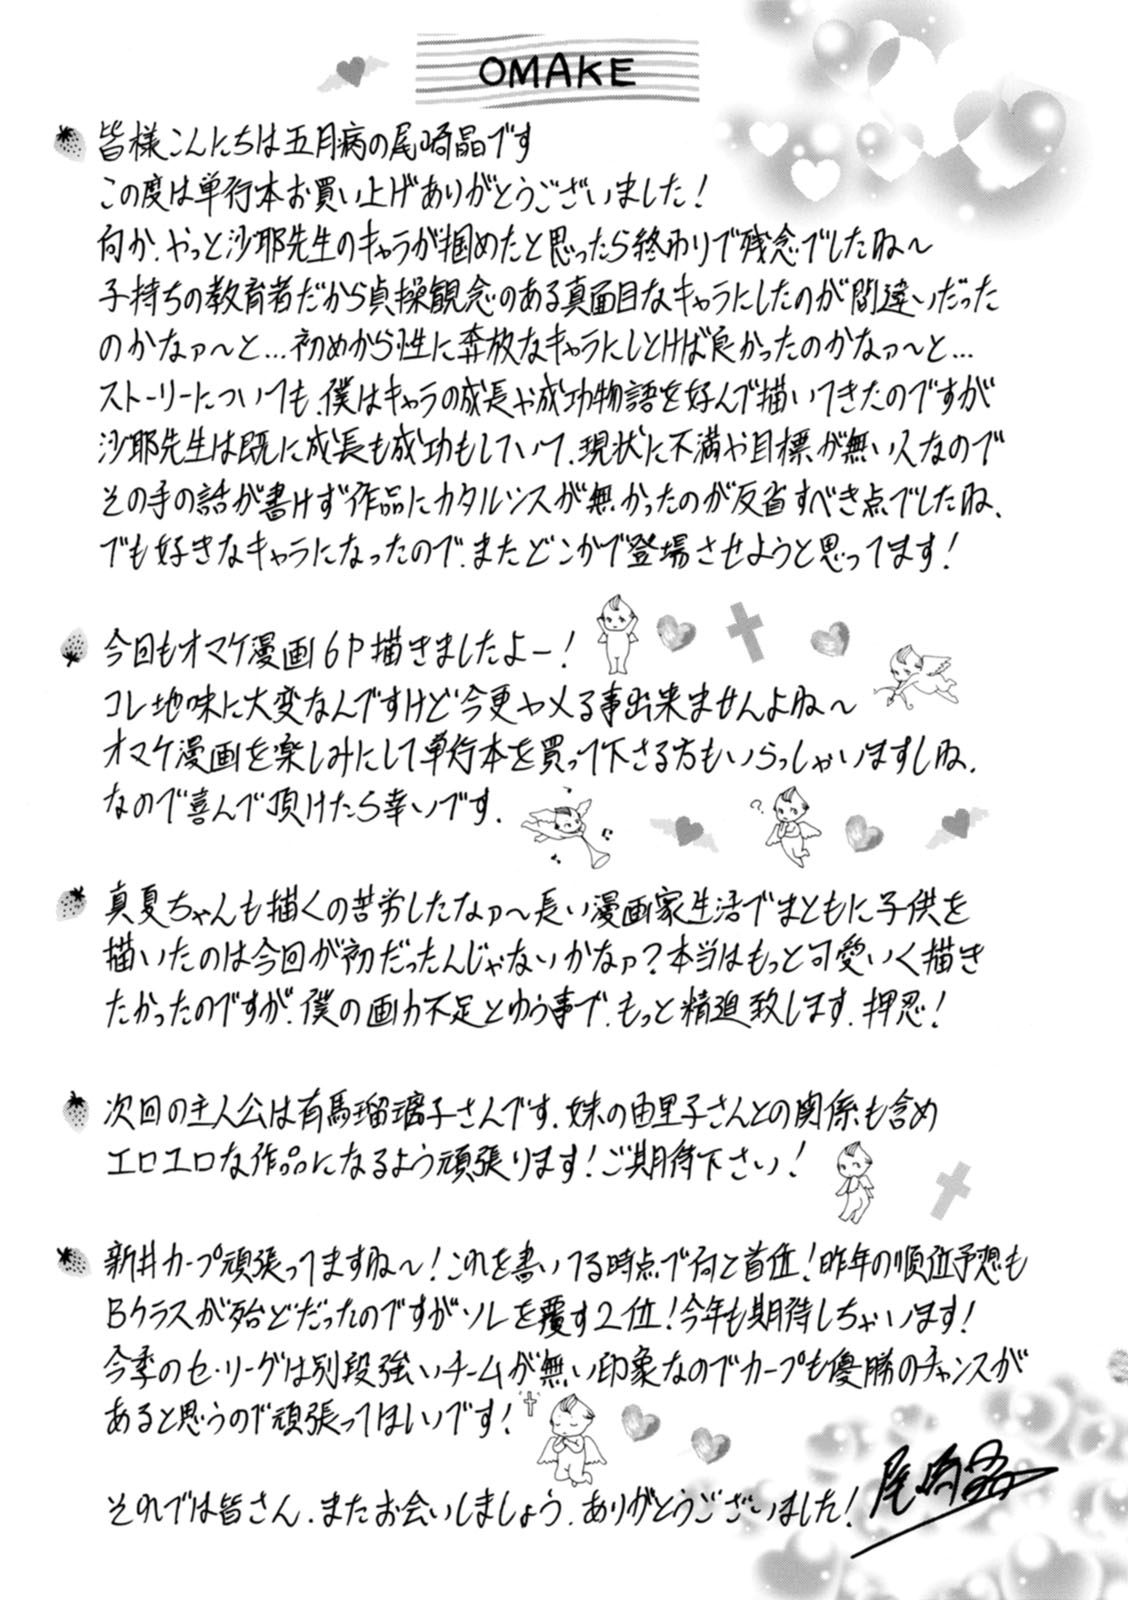 OMAKE
皆様こんにちは五月病の尾崎晶です
この度は単行本お買い上げありがとうございました！
何か、やっと沙耶先生のキャラが掴めたと思ったら終わりで残念でしたね〜
子持ちの教育者だから貞操観念のある真面目なキャラにしたのが間違いだった
のかなァ〜と…初めから性に奔放なキャラにしとけば良かったのかなァ〜と…
ストーリーについても、僕はキャラの成長や成功物語を好んで描いてきたのですが
沙耶先生は既に成長も成功もしていて、現状に不満や目標が無い人なので
その手の話が書けず作品にカタルシスが無かったのが反省すべき点でしたね、
でも好きなキャラになったので、またどこかで登場させようと思ってます！
今回もオマケ漫画6P描きましたよー！
コレ地味に大変なんですけど今更ヤメる事出来ませんよね〜
オマケ漫画を楽しみにして単行本を買って下さる方もいらっしゃいますしね、
なので喜んで頂けたら幸いです、
真夏ちゃんも描くの苦労したなァ〜長い漫画家生活でまともに子供を
描いたのは今回が初だったんじゃないかなァ？本当はもっと可愛いく描き
たかったのですが、僕の画力不足とゆう事で、もっと精進致します、押忍！
次回の主人公は有馬瑠璃子さんです、妹の由里子さんとの関係も含め
エロエロな作品になるよう頑張ります！ご期待下さい！
新井カープ頑張ってますね〜！これを書いてる時点で何と首位！昨年の順位予想も
Bクラスが殆どだったのですがソレを覆す2位！今年も期待しちゃいます！
今季のセ・リーグは別段強いチームが無い印象なのでカープも優勝のチャンスが
あると思うので頑張ってほしいです！
それでは皆さん、またお会いしましょう、ありがとうございました！
尾崎晶